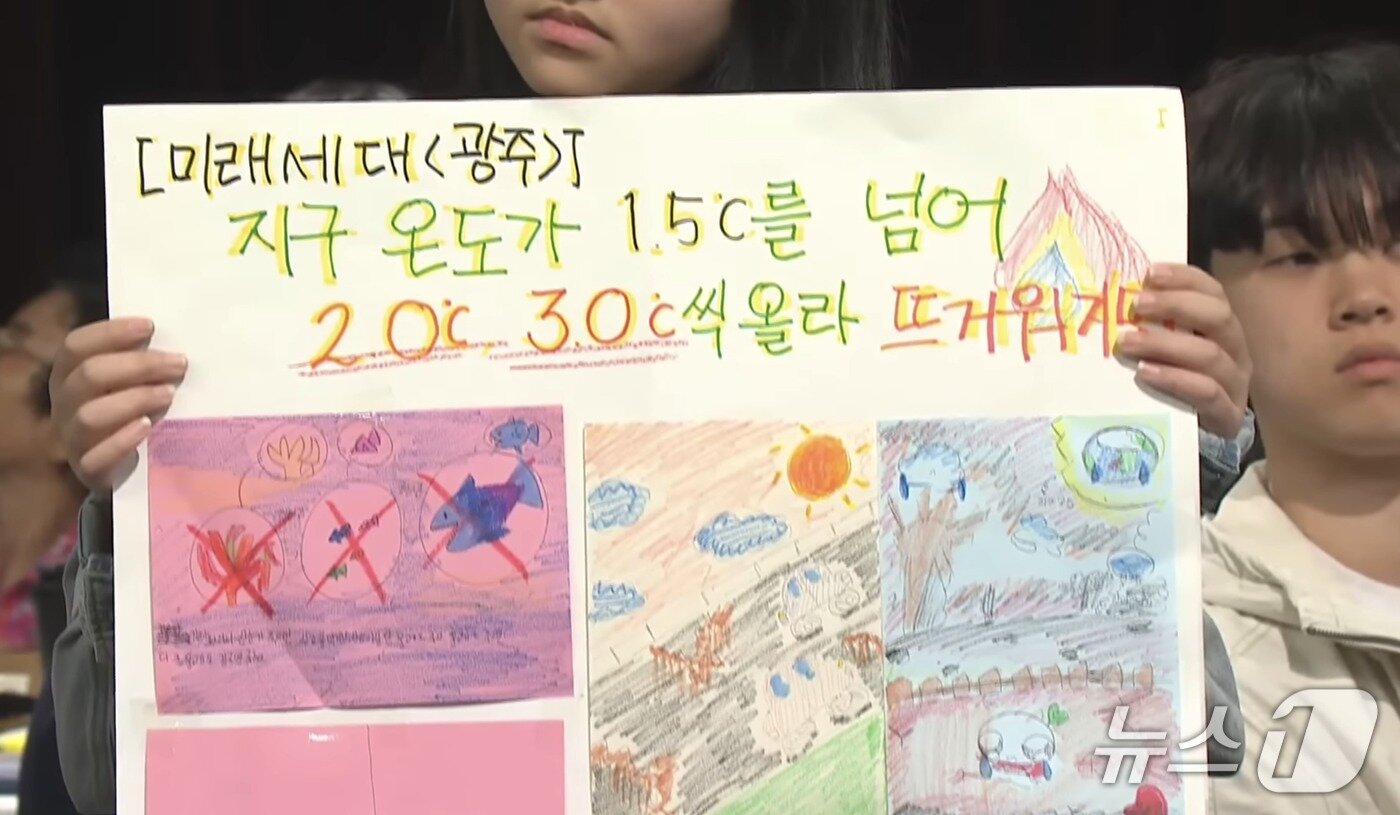 [미래세대<광주>]
지구 온도가 1.5℃를 넘어
2.0℃, 3.0℃씩 올라 뜨거워지면
뉴스1